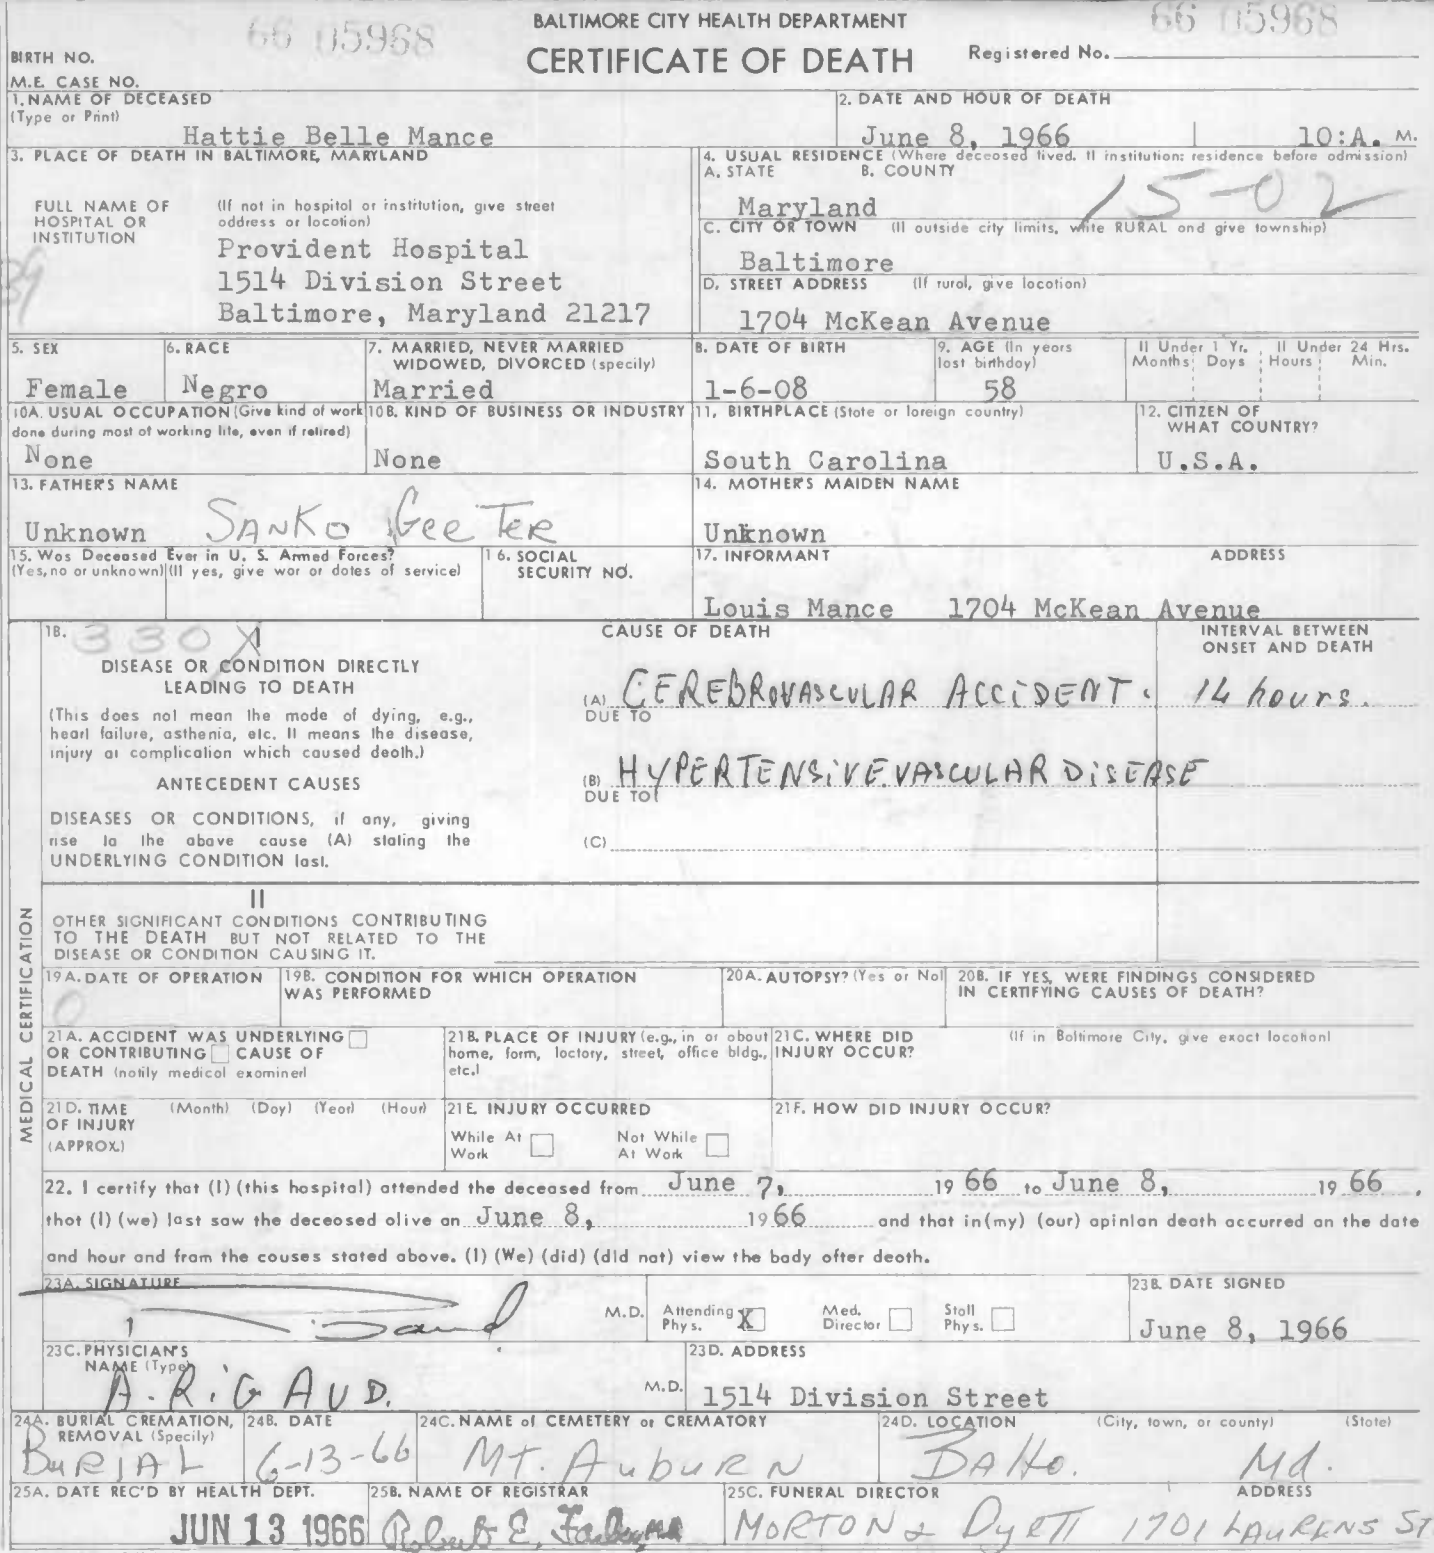 66 05968
BALTIMORE CITY HEALTH DEPARTMENT
66 05968
BIRTH NO.
CERTIFICATE OF DEATH
Registered No.
M.E. CASE NO.
1. NAME OF DECEASED
(Type or Print)
Hattie Belle Mance
2. DATE AND HOUR OF DEATH
June 8, 1966 10:A. M.
3. PLACE OF DEATH IN BALTIMORE, MARYLAND
FULL NAME OF HOSPITAL OR INSTITUTION
(If not in hospital or institution, give street address or location)
Provident Hospital
1514 Division Street
Baltimore, Maryland 21217
4. USUAL RESIDENCE (Where deceased lived. If institution: residence before admission)
A. STATE B. COUNTY
Maryland 15-02
C. CITY OR TOWN (If outside city limits, write RURAL and give township)
Baltimore
D. STREET ADDRESS (If rural, give location)
1704 McKean Avenue
5. SEX
Female
6. RACE
Negro
7. MARRIED, NEVER MARRIED
WIDOWED, DIVORCED (specify)
Married
8. DATE OF BIRTH
1-6-08
9. AGE (In years last birthday)
58
If Under 1 Yr. Months Days
If Under 24 Hrs. Hours Min.
10A. USUAL OCCUPATION (Give kind of work
done during most of working life, even if retired)
None
10B. KIND OF BUSINESS OR INDUSTRY
None
11. BIRTHPLACE (State or foreign country)
South Carolina
12. CITIZEN OF
WHAT COUNTRY?
U.S.A.
13. FATHER'S NAME
Unknown SANKO GeeTER
14. MOTHER'S MAIDEN NAME
Unknown
15. Was Deceased Ever in U. S. Armed Forces?
(Yes, no or unknown) (If yes, give war or dates of service)
16. SOCIAL
SECURITY NO.
17. INFORMANT ADDRESS
Louis Mance 1704 McKean Avenue
18. 330X I
CAUSE OF DEATH
INTERVAL BETWEEN
ONSET AND DEATH
DISEASE OR CONDITION DIRECTLY
LEADING TO DEATH
(This does not mean the mode of dying, e.g.,
heart failure, asthenia, etc. It means the disease,
injury or complication which caused death.)
(A) CEREBROVASCULAR ACCIDENT. 14 hours.
DUE TO
ANTECEDENT CAUSES
(B) HYPERTENSIVE VASCULAR DISEASE
DUE TO
DISEASES OR CONDITIONS, if any, giving
rise to the above cause (A) stating the
UNDERLYING CONDITION last.
(C)
II
OTHER SIGNIFICANT CONDITIONS CONTRIBUTING
TO THE DEATH BUT NOT RELATED TO THE
DISEASE OR CONDITION CAUSING IT.
MEDICAL CERTIFICATION
19A. DATE OF OPERATION
0
19B. CONDITION FOR WHICH OPERATION
WAS PERFORMED
20A. AUTOPSY? (Yes or No)
20B. IF YES, WERE FINDINGS CONSIDERED
IN CERTIFYING CAUSES OF DEATH?
21A. ACCIDENT WAS UNDERLYING
OR CONTRIBUTING CAUSE OF
DEATH (notify medical examiner)
21B. PLACE OF INJURY (e.g., in or about
home, farm, factory, street, office bldg.,
etc.)
21C. WHERE DID (If in Baltimore City, give exact location)
INJURY OCCUR?
21D. TIME (Month) (Day) (Year) (Hour)
OF INJURY
(APPROX.)
21E. INJURY OCCURRED
While At Work
Not While At Work
21F. HOW DID INJURY OCCUR?
22. I certify that (I) (this hospital) attended the deceased from June 7, 19 66 to June 8, 19 66 ,
that (I) (we) last saw the deceased alive on June 8, 19 66 and that in (my) (our) opinion death occurred on the date
and hour and from the causes stated above. (I) (We) (did) (did not) view the body after death.
23A. SIGNATURE
M.D.
Attending Phys. X
Med. Director
Staff Phys.
23B. DATE SIGNED
June 8, 1966
23C. PHYSICIAN'S
NAME (Type)
A. RIGAUD. M.D.
23D. ADDRESS
1514 Division Street
24A. BURIAL CREMATION,
REMOVAL (Specify)
BURIAL
24B. DATE
6-13-66
24C. NAME of CEMETERY or CREMATORY
Mt. Auburn
24D. LOCATION (City, town, or county) (State)
Balto. Md.
25A. DATE REC'D BY HEALTH DEPT.
JUN 13 1966
25B. NAME OF REGISTRAR
Robert E.
25C. FUNERAL DIRECTOR ADDRESS
MORTON & DyeTT 1701 LAURENS ST